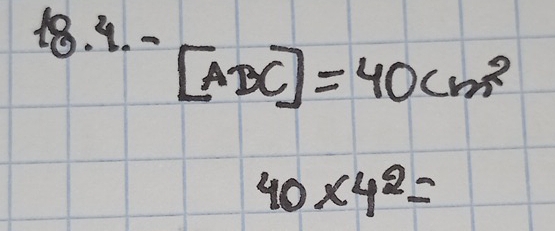 18.4.-
[ABC] = 40cm²
40 × 4² =